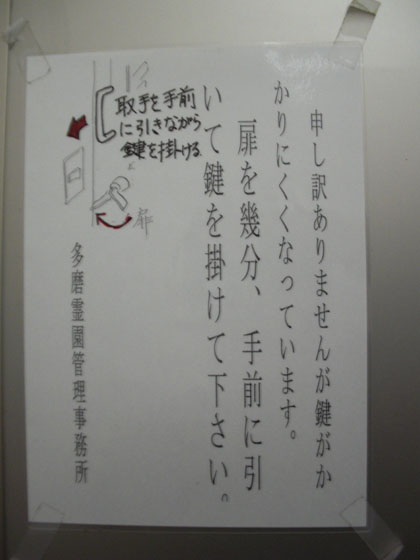 申し訳ありませんが鍵がか
かりにくくなっています。
扉を幾分、手前に引
いて鍵を掛けて下さい。
取手を手前
に引きながら
鍵を掛ける
扉
多磨霊園管理事務所